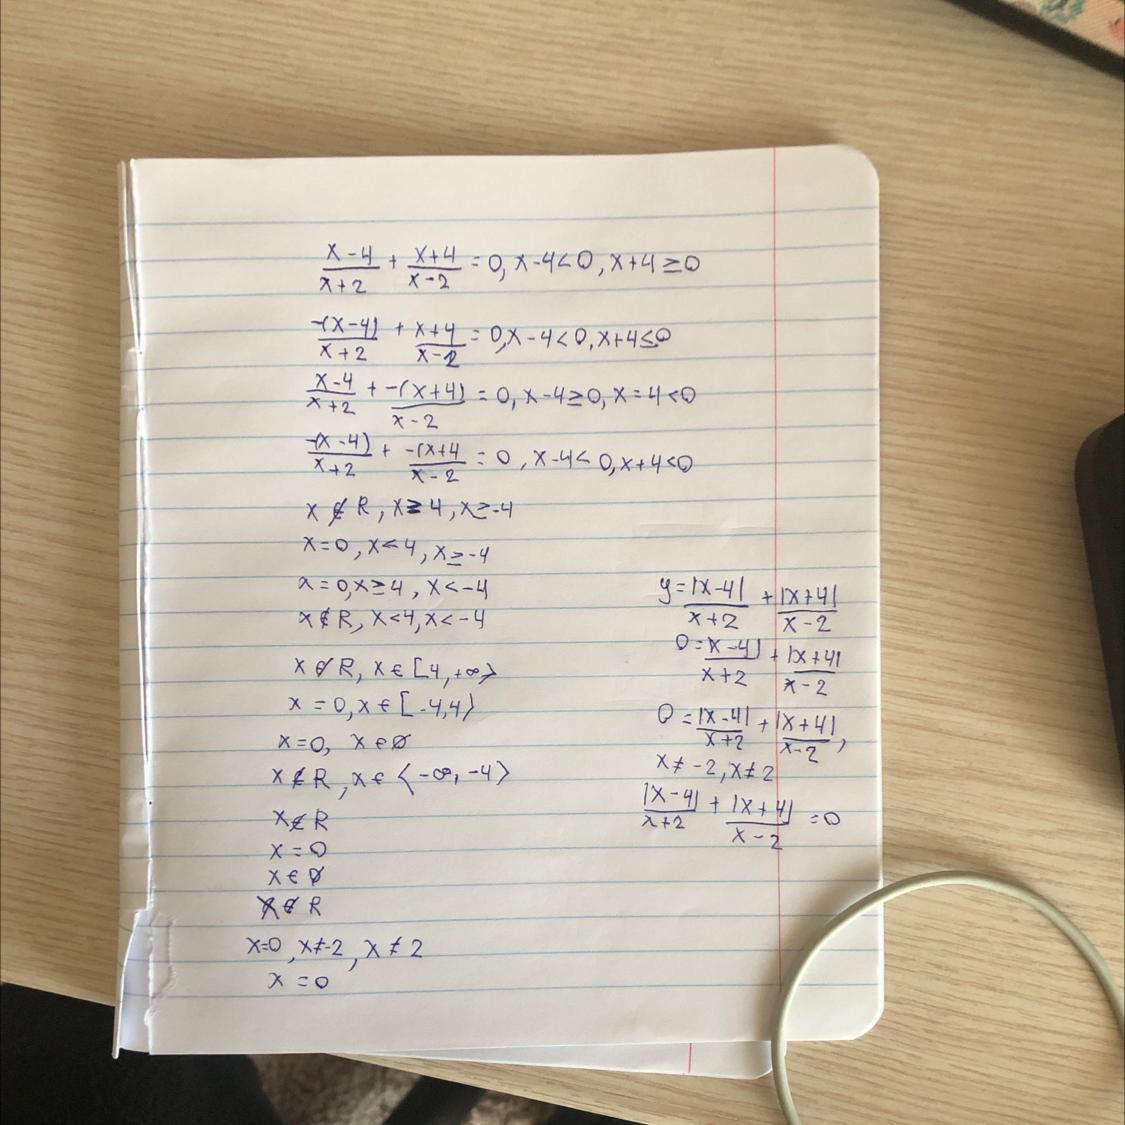 x-4/x+2 + x+4/x-2 = 0, x-4<0, x+4≥0
-(x-4)/x+2 + x+4/x-2 = 0, x-4<0, x+4≤0
x-4/x+2 + -(x+4)/x-2 = 0, x-4≥0, x=4<0
-(x-4)/x+2 + -(x+4/x-2 = 0, x-4<0, x+4<0
x∉R, x≥4, x≥-4
x=0, x<4, x≥-4
x=0, x≥4, x<-4
x∉R, x<4, x<-4
x∉R, x∈[4,+∞⟩
x=0, x∈[-4,4⟩
x=0, x∈∅
x∉R, x∈⟨-∞,-4⟩
x∉R
x=0
x∈∅
x∉R
x=0, x≠-2, x≠2
x=0
y=|x-4|/x+2 + |x+4|/x-2
0=|x-4|/x+2 + |x+4|/x-2
0=|x-4|/x+2 + |x+4|/x-2,
x≠-2, x≠2
|x-4|/x+2 + |x+4|/x-2 = 0